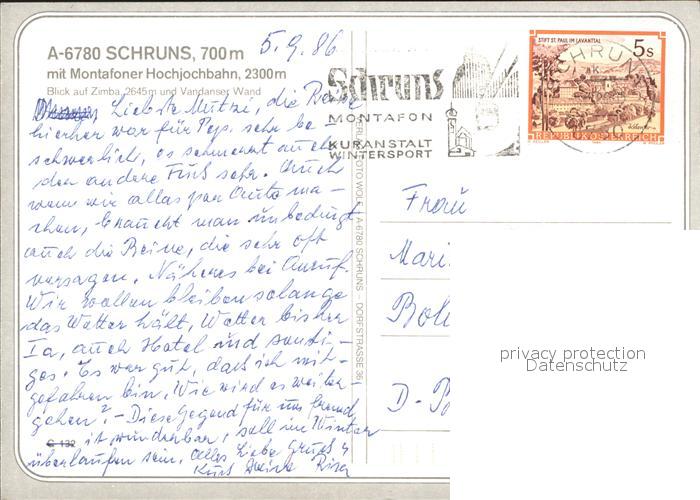 A-6780 SCHRUNS, 700 m
mit Montafoner Hochjochbahn, 2300 m
Blick auf Zimba, 2645 m und Vandanser Wand
5.9.86
Liebste Mutzi, die Reise
hierher war für Pips sehr be-
schwerlich, es schmerzt auch
der andere Fuß sehr. Auch
wenn wir alles per Auto ma-
chen, braucht man unbedingt
auch die Beine, die sehr oft
versagen. Näheres bei Anruf.
Wir wollen bleiben solange
das Wetter hält, Wetter bisher
Ia, auch Hotel und sonsti-
ges. Es war gut, daß ich mit-
gefahren bin. Wie wird es weiter-
gehen? - Diese Gegend für uns fremd,
C 132 ist wunderbar, soll im Winter
überlaufen sein. Alles Liebe
Schruns
MONTAFON
KURANSTALT
WINTERSPORT
STIFT ST. PAUL IM LAVANTTAL
5 S
REPUBLIK ÖSTERREICH
SCHRUNS
A-6780 SCHRUNS – DORFSTRASSE 36
Frau
Mari
D-
privacy protection
Datenschutz